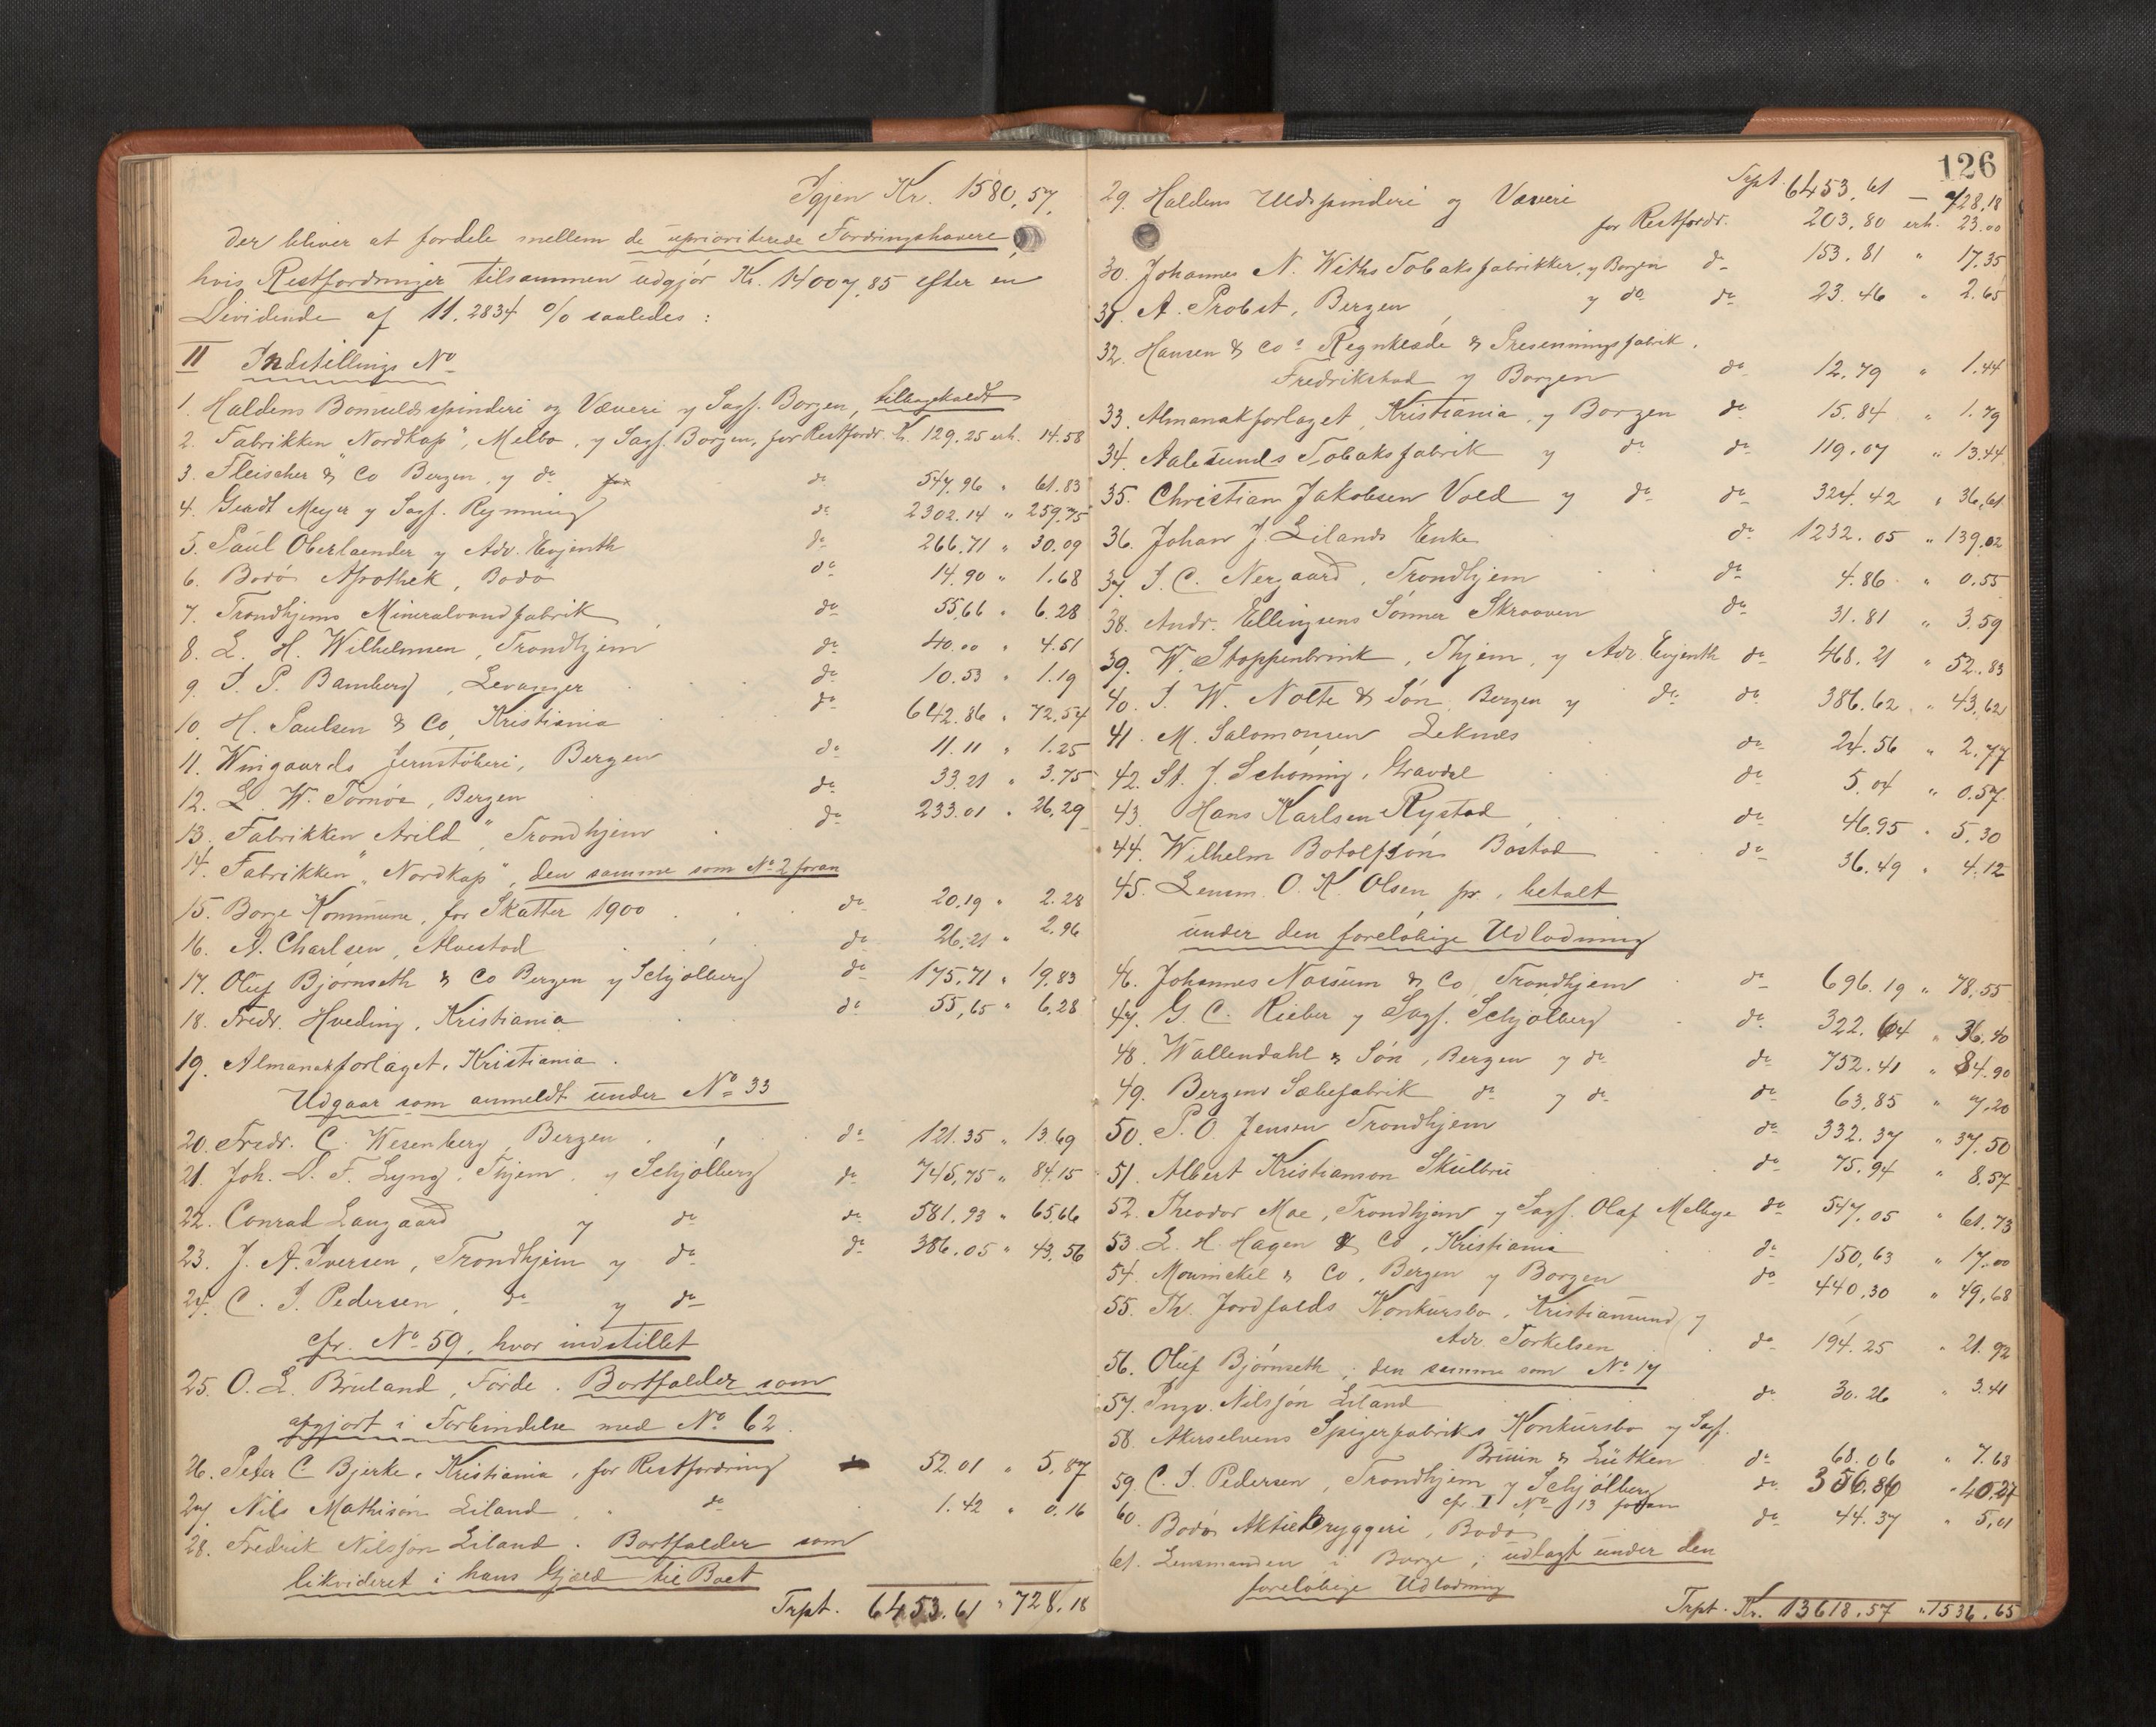 Igjen Kr. 1580.57.
der bliver at fordele mellem de uprioriterede Fordringshavere,
hvis Restfordringer tilsammen udgjør Kr. 14007.85 efter en
Dividende af 11.2834 % saaledes:
II Indstillings No
1. Haldens Bomuldsspinderi og Væveri v Sagf. Borgen, tilbageholdt
2. Fabrikken "Nordkap", Melbo, v Sagf. Borgen, for Restfordr. Kr. 129.25 erh. 14.58
3. Fleischer & Co Bergen, v do for do 547.96 " 61.83
4. Gerdt Meyer v Sagf. Rynning do 2302.14 " 259.75
5. Paul Oberlaender v Adv. Evjenth do 266.71 " 30.09
6. Bodø Apothek, Bodø do 14.90 " 1.68
7. Trondhjems Mineralvandfabrik do 55.66 " 6.28
8. L. H. Wilhelmsen, Trondhjem do 40.00 " 4.51
9. I. P. Bamberg, Levanger do 10.53 " 1.19
10. H. Paulsen & Co, Kristiania do 642.86 " 72.54
11. Wingaards Jernstøberi, Bergen do 11.11 " 1.25
12. L. W. Tornøe, Bergen do 33.21 " 3.75
13. Fabrikken Arild", Trondhjem do 233.01 " 26.29
14. Fabrikken "Nordkap", den samme som No 2 foran
15. Borge Kommune, for Skatter 1900 do 20.19 " 2.28
16. A. Charlsen, Alvestad do 26.21 " 2.96
17. Oluf Bjørnseth & Co Bergen v Schjølberg do 175.71 " 19.83
18. Fredr. Hveding, Kristiania do 55.65 " 6.28
19. Almanakforlaget, Kristiania.
Udgaar som anmeldt under No 33
20. Fredr. C. Wesenberg, Bergen do 121.35 " 13.69
21. Joh. D. F. Lyng, Thjem, v Schjølberg do 745.75 " 84.15
22. Conrad Langaard v do do 581.93 " 65.66
23. J. A. Iversen, Trondhjem v do do 386.05 " 43.56
24. C. I. Pedersen, do v do
cfr. No 59, hvor indstillet
25. O. L. Bruland, Førde. Bortfalder som
afgjort i Forbindelse med No 62.
26. Peter C. Bjerke, Kristiania, for Restfordring 52.01 " 5.87
27. Nils Mathisøn Liland, do 1.42 " 0.16
28. Fredrik Nilsjøn Liland. Bortfalder som
likvideret i hans Gjæld til Boet
Trpt. 6453.61 " 728.18
126
Trpt. 6453.61 — 728.18
29. Haldens Uldspinderi og Væveri
for Restfordr. 203.80 erh. 23.00
30. Johannes N. Withs Tobaksfabrikker, v Borgen do 153.81 " 17.35
31. A. Probst, Bergen, v do do 23.46 " 2.65
32. Hansen & Cos Regnklæde & Presenningsfabrik,
Fredrikstad v Borgen do 12.79 " 1.44
33. Almanakforlaget, Kristiania, v Borgen do 15.84 " 1.79
34. Aalesunds Tobaksfabrik v do do 119.07 " 13.44
35. Christian Jakobsen Vold v do do 324.42 " 36.61
36. Johan J. Lilands Enke do 1232.05 " 139.02
37. I. C. Nergaard, Trondhjem do 4.86 " 0.55
38. Andr. Ellingsens Sønner Skraaven do 31.81 " 3.59
39. W. Stoppenbrink, Thjem, v Adv. Evjenth do 468.21 " 52.83
40. I. W. Nolte & Søn, Bergen v do do 386.62 " 43.62
41. M. Salomonsen Leknes do 24.56 " 2.77
42. St. J. Schøning, Gravdal do 5.04 " 0.57
43. Hans Karlsen Rystad do 46.95 " 5.30
44. Wilhelm Botolfsøn Bøstad do 36.49 " 4.12
45. Lensm. O. K. Olsen, pr., betalt
under den foreløbige Udlodning
46. Johannes Nossum & Co, Trondhjem do 696.19 " 78.55
47. G. C. Rieber v Sagf. Schjølberg do 322.64 " 36.40
48. Wallendahl & Søn, Bergen v do do 752.41 " 84.90
49. Bergens Sæbefabrik do v do do 63.85 " 7.20
50. P. O. Jensen Trondhjem do 332.37 " 37.50
51. Albert Kristianson Skulbru do 75.94 " 8.57
52. Theodor Moe, Trondhjem v Sagf. Olaf Melbye do 547.05 " 61.73
53. L. H. Hagen & Co, Kristiania do 150.63 " 17.00
54. Mowinckel & Co, Bergen v Borgen do 440.30 " 49.68
55. Th. Jordfalds Konkursbo, Kristiansund, v
Adv. Torkelsen do 194.25 " 21.92
56. Oluf Bjørnseth, den samme som No 17
57. Ingv. Nilsjøn Liland do 30.26 " 3.41
58. Akerselvens Spigerfabriks Konkursbo v Sagf.
Bruun & Lütken do 68.06 " 7.68
59. C. I. Pedersen, Trondhjem v Schjølberg do 356.86 " 40.27
cfr. I No 13 foran
60. Bodø Aktiebryggeri, Bodø do 44.37 " 5.01
61. Lensmanden i Borge; udlagt under den
foreløbige Udlodning
Trpt. Kr. 13618.57 " 1536.65